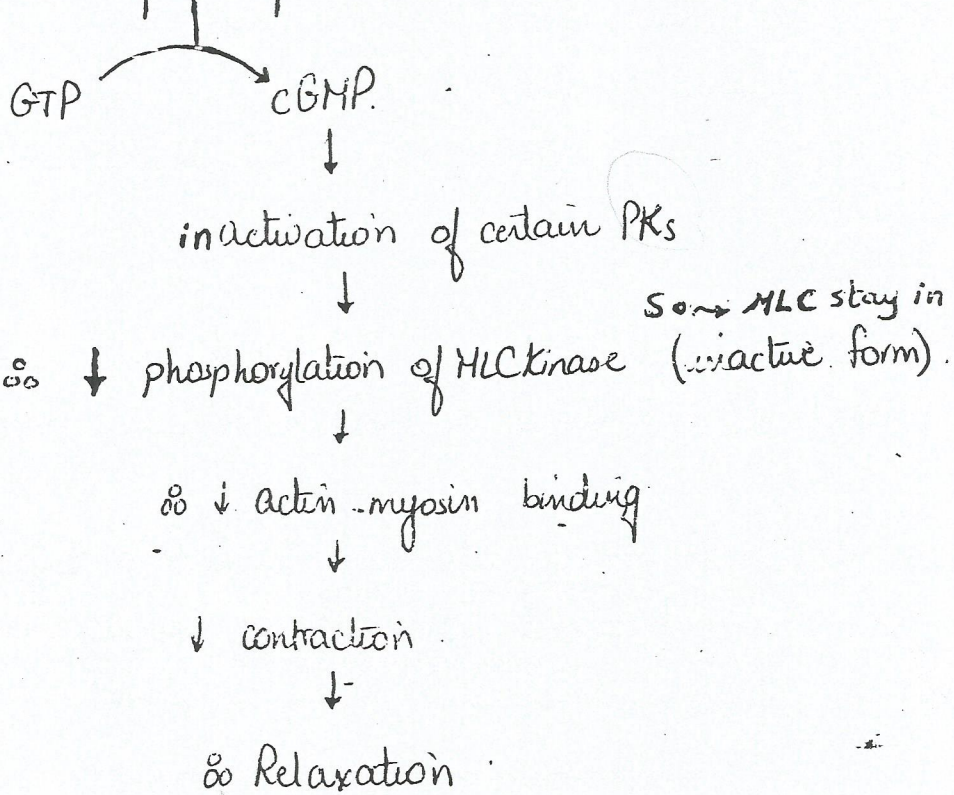 GTP cGMP.
↓
inactivation of certain PKs
↓
So → MLC stay in
∴ ↓ phosphorylation of MLCkinase (inactive form).
↓
∴ ↓ actin-myosin binding
↓
↓ contraction
↓
∴ Relaxation